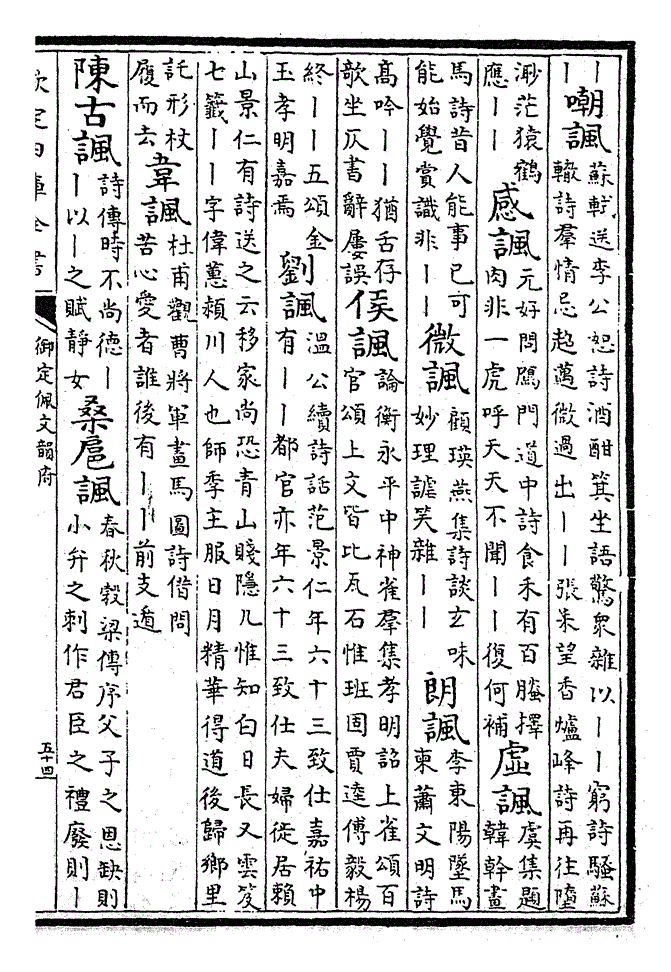 丨嘲諷蘇軾送李公恕詩酒酣箕坐語驚衆雜以丨丨窮詩騷蘇
丨轍詩羣情忌超邁微過出丨丨張耒望香爐峰詩再往墮
渺茫猿鶴感諷元好問鴈門道中詩食禾有百螣擇虛諷虞集題
應丨丨肉非一虎呼天天不聞丨丨復何補韓幹畫
馬詩昔人能事已可微諷顧瑛燕集詩談玄味朗諷李東陽墜馬
能始覺賞識非丨丨妙理謔笑雜丨丨柬蕭文明詩
高吟丨丨猶舌存侯諷論衡永平中神雀羣集孝明詔上雀頌百
歌坐仄書辭屢誤官頌上文皆比瓦石惟班固賈逵傅毅楊
終丨丨五頌金劉諷溫公續詩話范景仁年六十三致仕嘉祐中
玉孝明嘉焉有丨丨都官亦年六十三致仕夫婦徙居賴
山景仁有詩送之云移家尚恐青山賤隱几惟知白日長又雲笈
七籤丨丨字偉蕙潁川人也師季主服日月精華得道後歸鄉里
託形杖韋諷杜甫觀曹將軍畫馬圖詩借問
履而去苦心愛者誰後有丨丨前支遁
陳古諷詩傳時不尚德丨桑扈諷春秋穀梁傳序父子之恩缺則
丨以丨之賦靜女小弁之刺作君臣之禮廢則丨
欽定四庫全書
御定佩文韻府
五十四